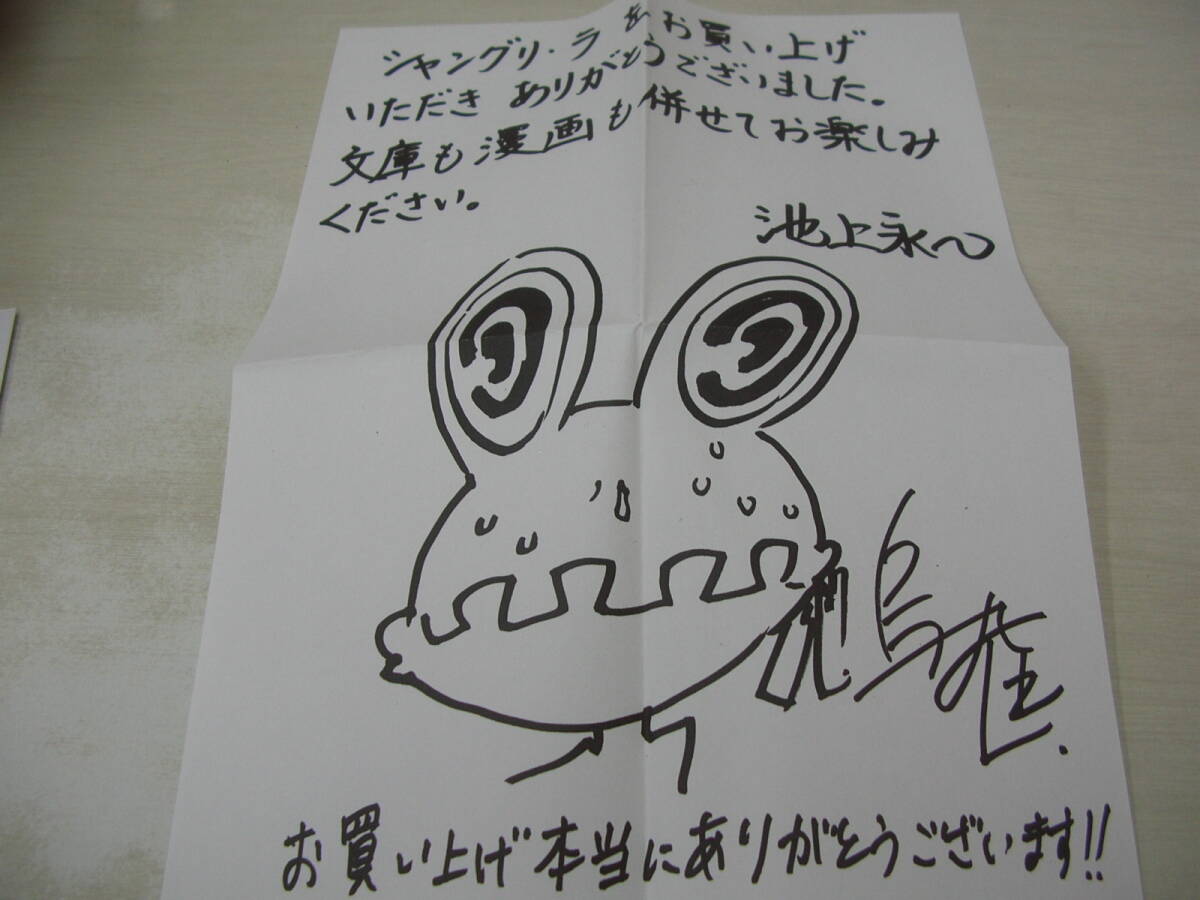 シャングリ・ラをお買い上げ
いただき ありがとうございました。
文庫も漫画も併せてお楽しみ
ください。
池上永一
お買い上げ本当にありがとうございます!!